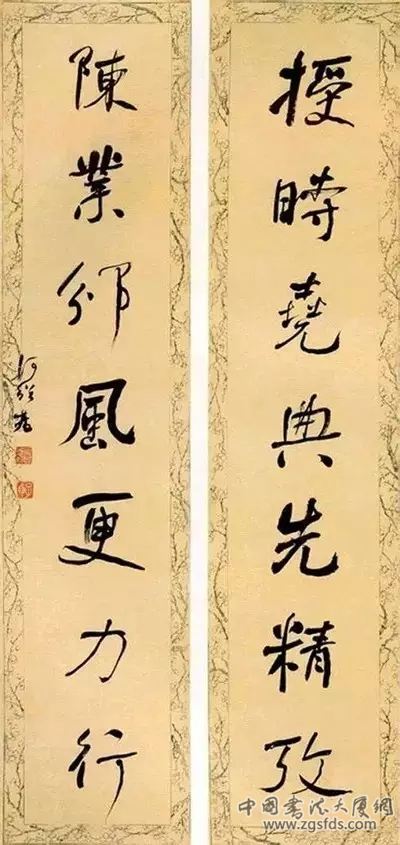 授時堯典先精攷
陳業邠風更力行
中國書法大廈網
www.zgsfds.com